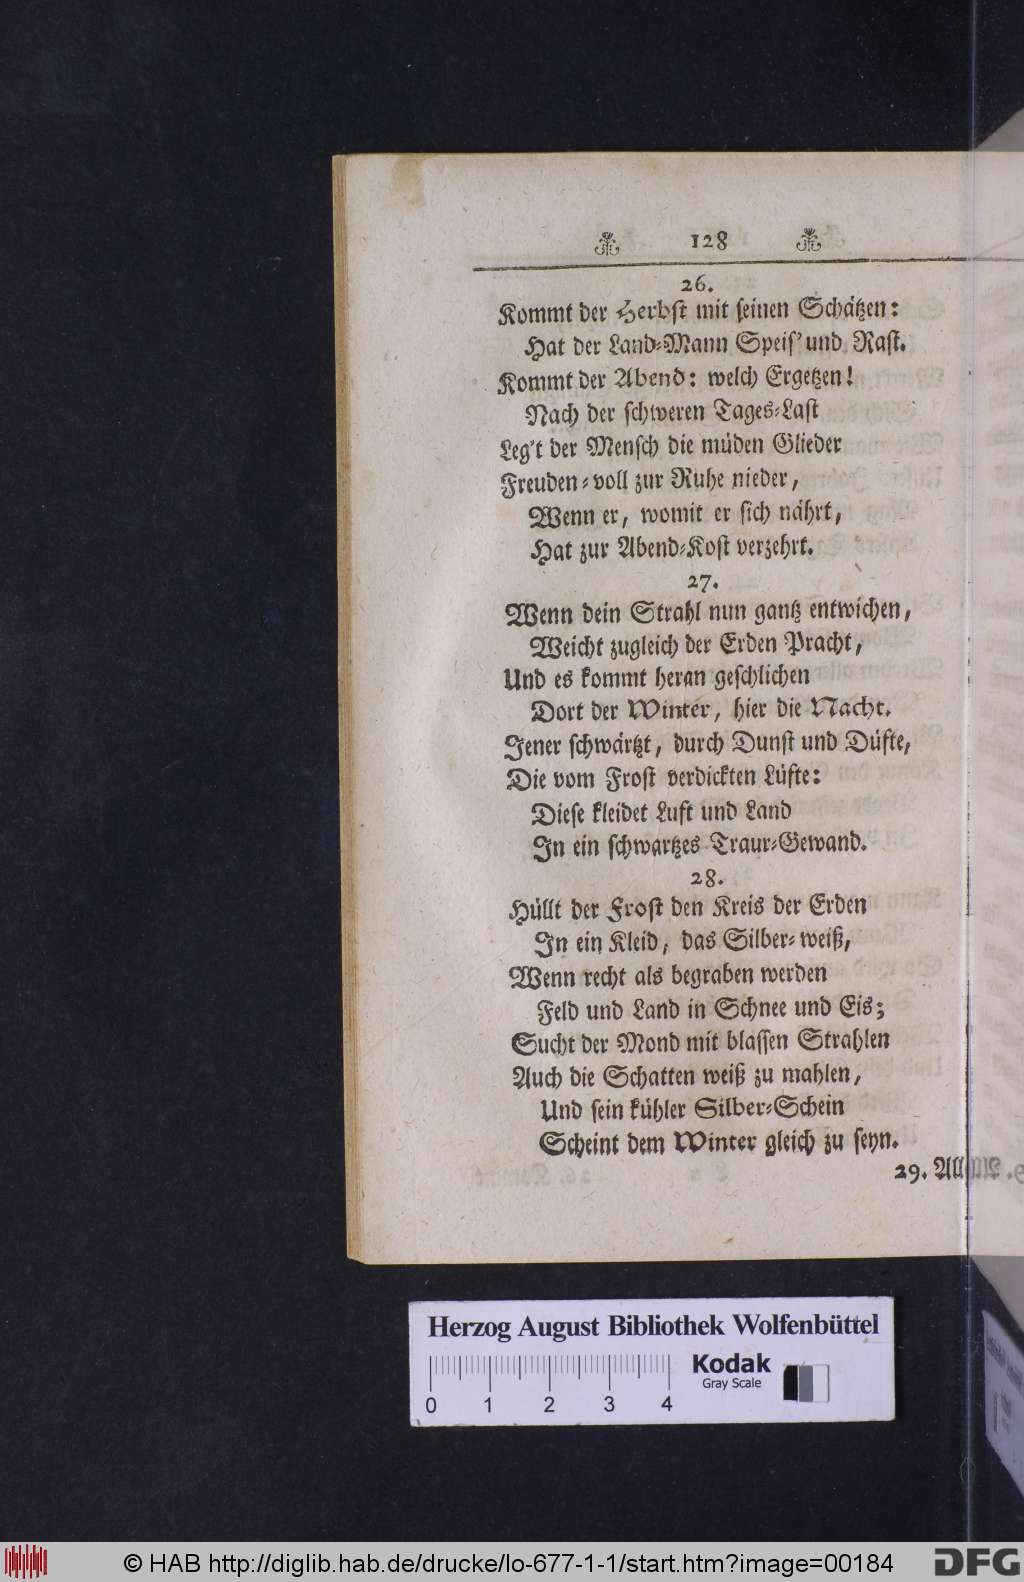 128
26.
Kommt der Herbst mit seinen Schätzen:
Hat der Land-Mann Speis' und Rast.
Kommt der Abend: welch Ergetzen!
Nach der schweren Tages-Last
Leg't der Mensch die müden Glieder
Freuden-voll zur Ruhe nieder,
Wenn er, womit er sich nährt,
Hat zur Abend-Kost verzehrt.
27.
Wenn dein Strahl nun gantz entwichen,
Weicht zugleich der Erden Pracht,
Und es kommt heran geschlichen
Dort der Winter, hier die Nacht.
Jener schwärtzt, durch Dunst und Düfte,
Die vom Frost verdickten Lüfte:
Diese kleidet Luft und Land
In ein schwartzes Traur-Gewand.
28.
Hüllt der Frost den Kreis der Erden
In ein Kleid, das Silber-weiß,
Wenn recht als begraben werden
Feld und Land in Schnee und Eis;
Sucht der Mond mit blassen Strahlen
Auch die Schatten weiß zu mahlen,
Und sein kühler Silber-Schein
Scheint dem Winter gleich zu seyn.
29. All
Herzog August Bibliothek Wolfenbüttel
Kodak
Gray Scale
0 1 2 3 4
© HAB http://diglib.hab.de/drucke/lo-677-1-1/start.htm?image=00184
DFG